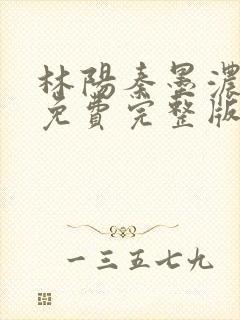 林陽秦墨濃
免費完整版
一三五七九